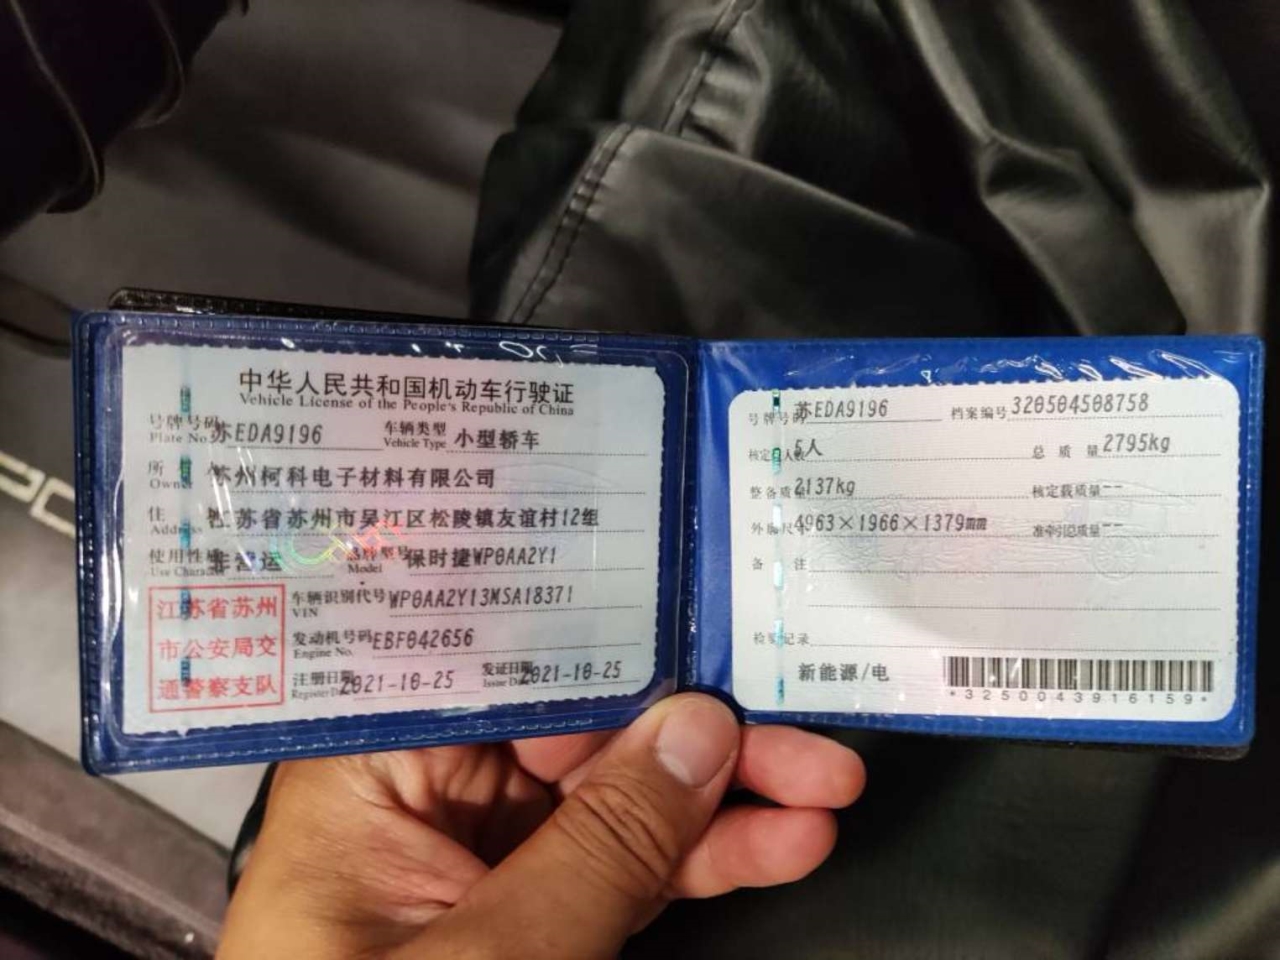 中华人民共和国机动车行驶证
Vehicle License of the People's Republic of China
号牌号码 苏EDA9196 车辆类型 小型轿车
Plate No. Vehicle Type
所 苏州柯科电子材料有限公司
Owner
住 江苏省苏州市吴江区松陵镇友谊村12组
Address
使用性质 非营运 品牌型号 保时捷WP0AA2Y1
Use Character Model
江苏省苏州
市公安局交
通警察支队
车辆识别代号 WP0AA2Y13MSA18371
VIN
发动机号码 EBF042656
Engine No.
注册日期 2021-10-25 发证日期 2021-10-25
Register Date Issue Date
号牌号码 苏EDA9196 档案编号 320504508758
核定载人数 5人 总质量 2795kg
整备质量 2137kg 核定载质量 --
外廓尺寸 4963×1966×1379mm 准牵引总质量 --
备 注
检验记录
新能源/电
*3250043916159*